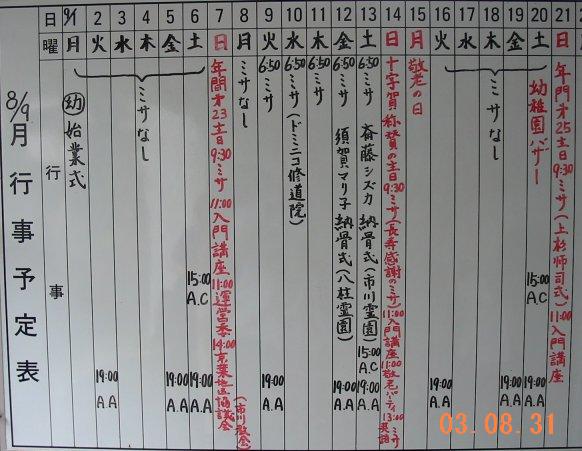 8/9月行事予定表
日 9/1 2 3 4 5 6 7 8 9 10 11 12 13 14 15 16 17 18 19 20 21
曜 月 火 水 木 金 土 日 月 火 水 木 金 土 日 月 火 水 木 金 土 日
行事
幼 始業式
ミサなし
19:00 A.A
19:00 A.A
15:00 A.C
19:00 A.A
年間才23主日 9:30 ミサ 11:00 入門講座 11:00 運営委 14:00 京葉地区協議会
(市川教会)
ミサなし
6:50 ミサ
19:00 A.A
6:50 ミサ(ドミニコ修道院)
6:50 ミサ
6:50 ミサ 須賀マリ子 納骨式(八柱霊園)
19:00 A.A
6:50 ミサ 斎藤シズカ 納骨式(市川霊園)
15:00 A.C
19:00 A.A
十字架称賛の主日 9:30 ミサ(長寿感謝のミサ) 11:00 入門講座 11:00 敬老パーティ 13:00 英語ミサ
敬老の日
ミサなし
19:00 A.A
19:00 A.A
幼稚園バザー
15:00 A.C
19:00 A.A
年間才25主日 9:30 ミサ(上杉师司式) 11:00 入門講座
03.08.31